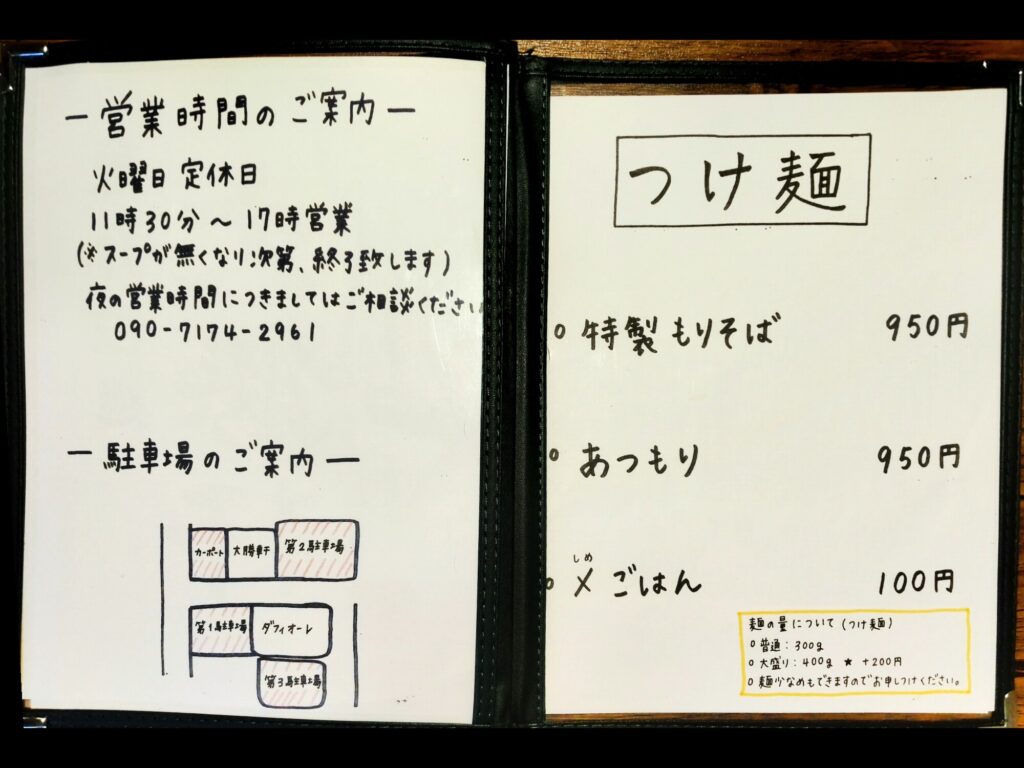 ― 営業時間のご案内 ―
火曜日 定休日
11時30分～17時営業
(※スープが無くなり次第、終了致します)
夜の営業時間につきましてはご相談ください
090-7174-2961
― 駐車場のご案内 ―
カーポート 大勝軒 第2駐車場
第1駐車場 ダフィオーレ
第3駐車場
つけ麺
○ 特製もりそば 950円
○ あつもり 950円
しめ
○ 〆ごはん 100円
麺の量について(つけ麺)
○ 普通：300g
○ 大盛り：400g ★ +200円
○ 麺少なめもできますのでお申しつけください。